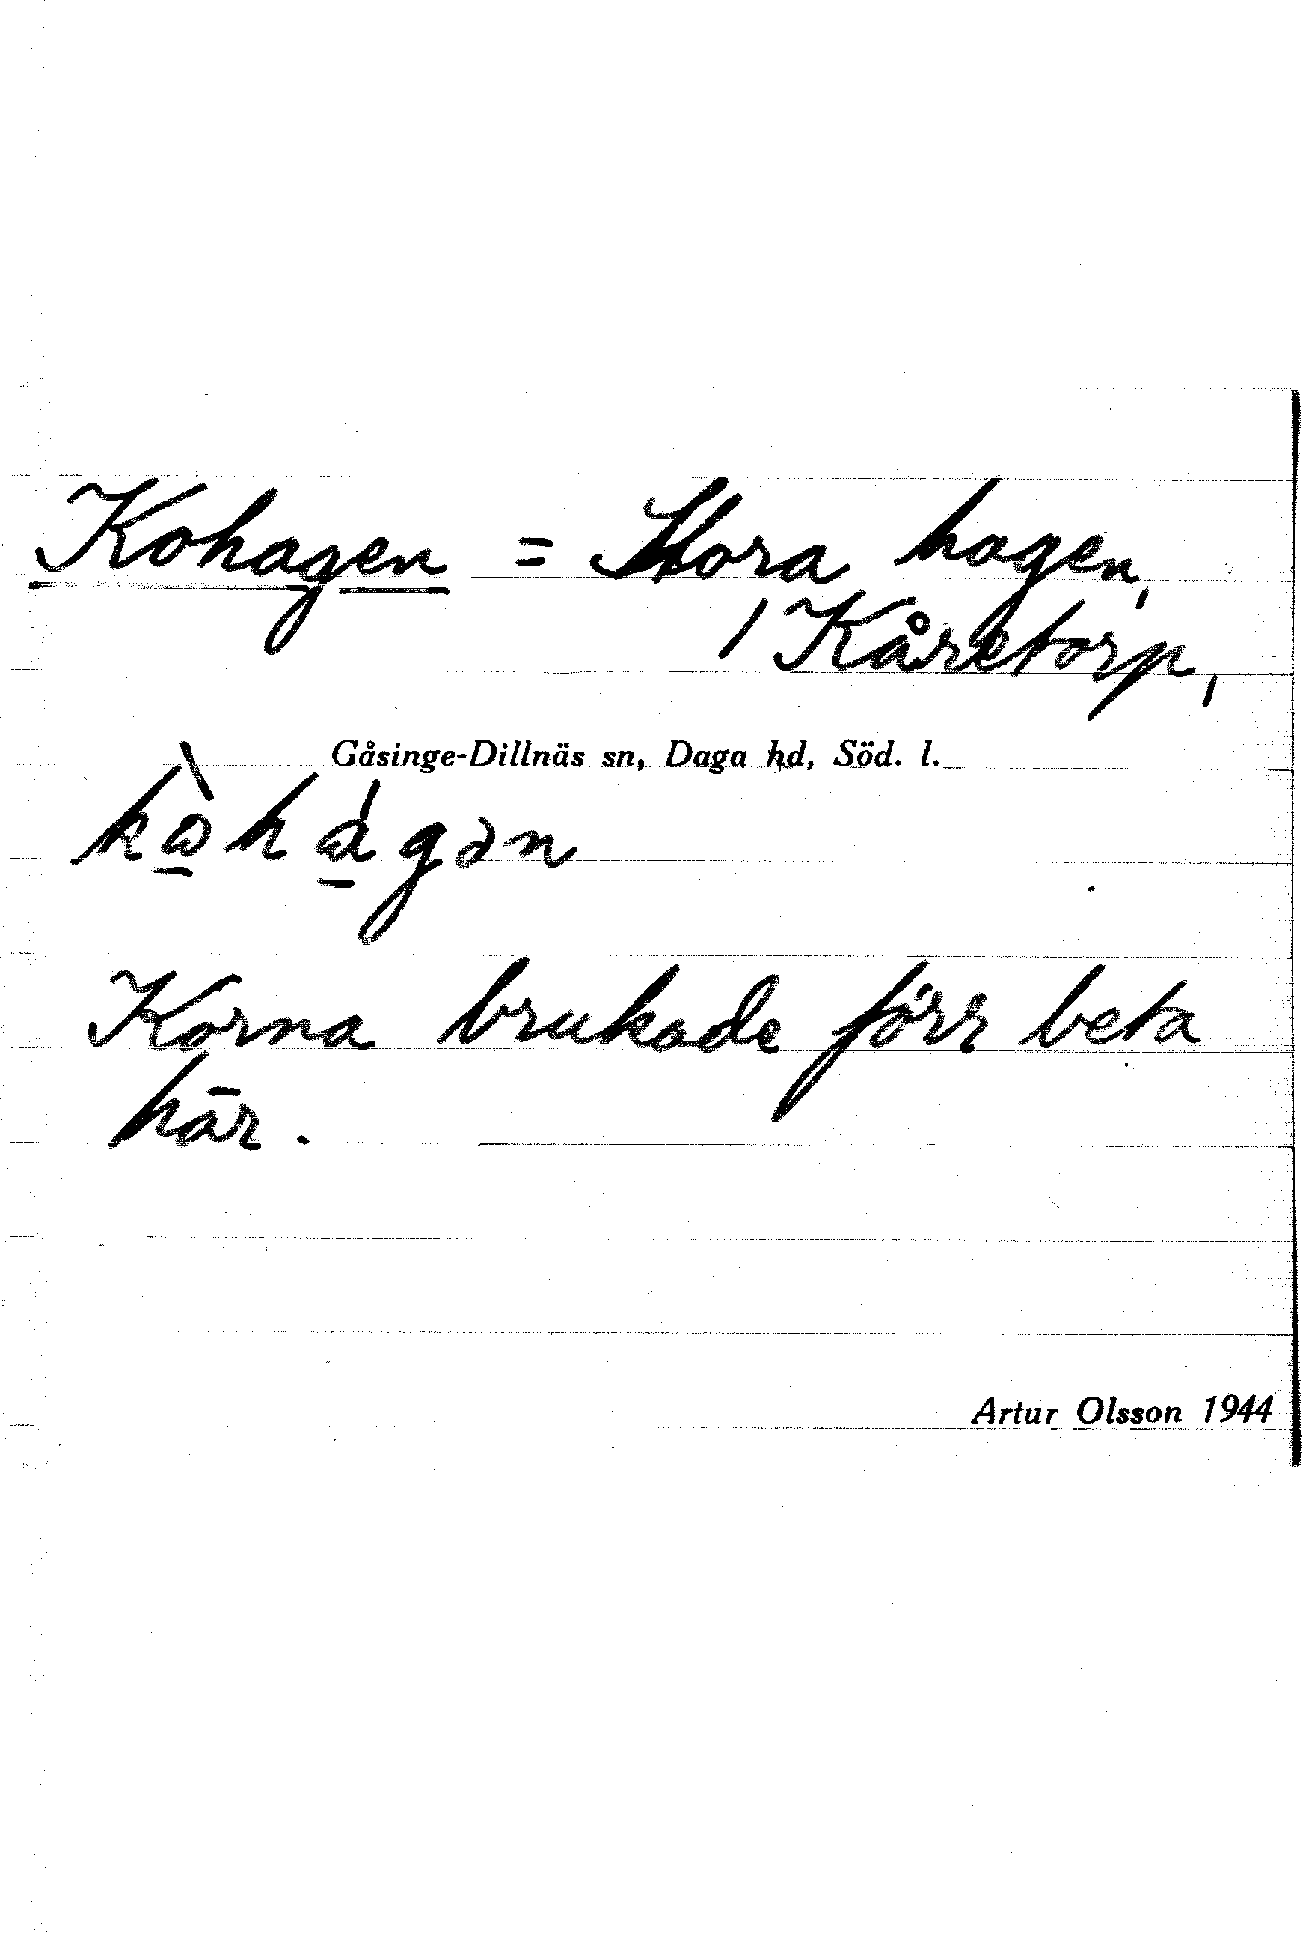 Kohagen = Stora hagen,
/ Kåretorp,
Gåsinge-Dillnäs sn, Daga hd, Söd. l.
kὼ̱hа̱́gən
Korna brukade förr beta
här.
Artur Olsson 1944